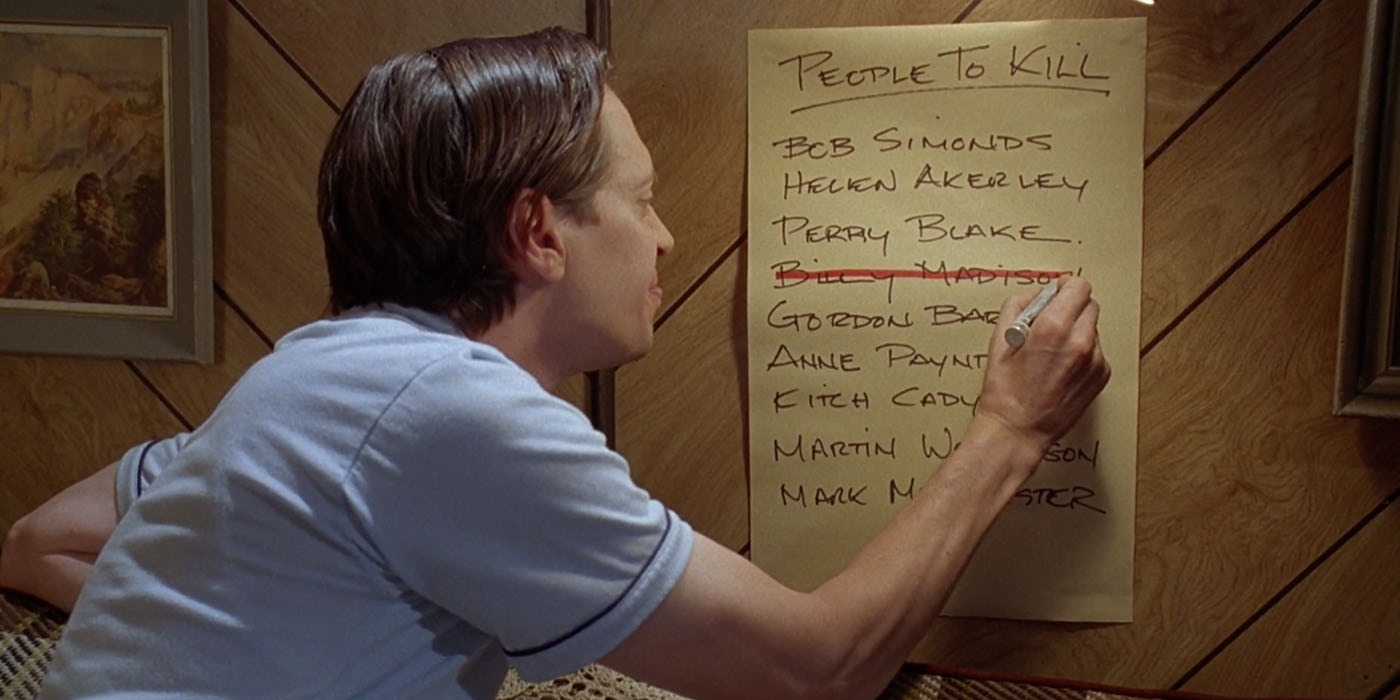 PEOPLE TO KILL
BOB SIMONDS
HELEN AKERLEY
PERRY BLAKE.
BILLY MADISON
GORDON
ANNE
KITCH CADY
MARTIN
MARK